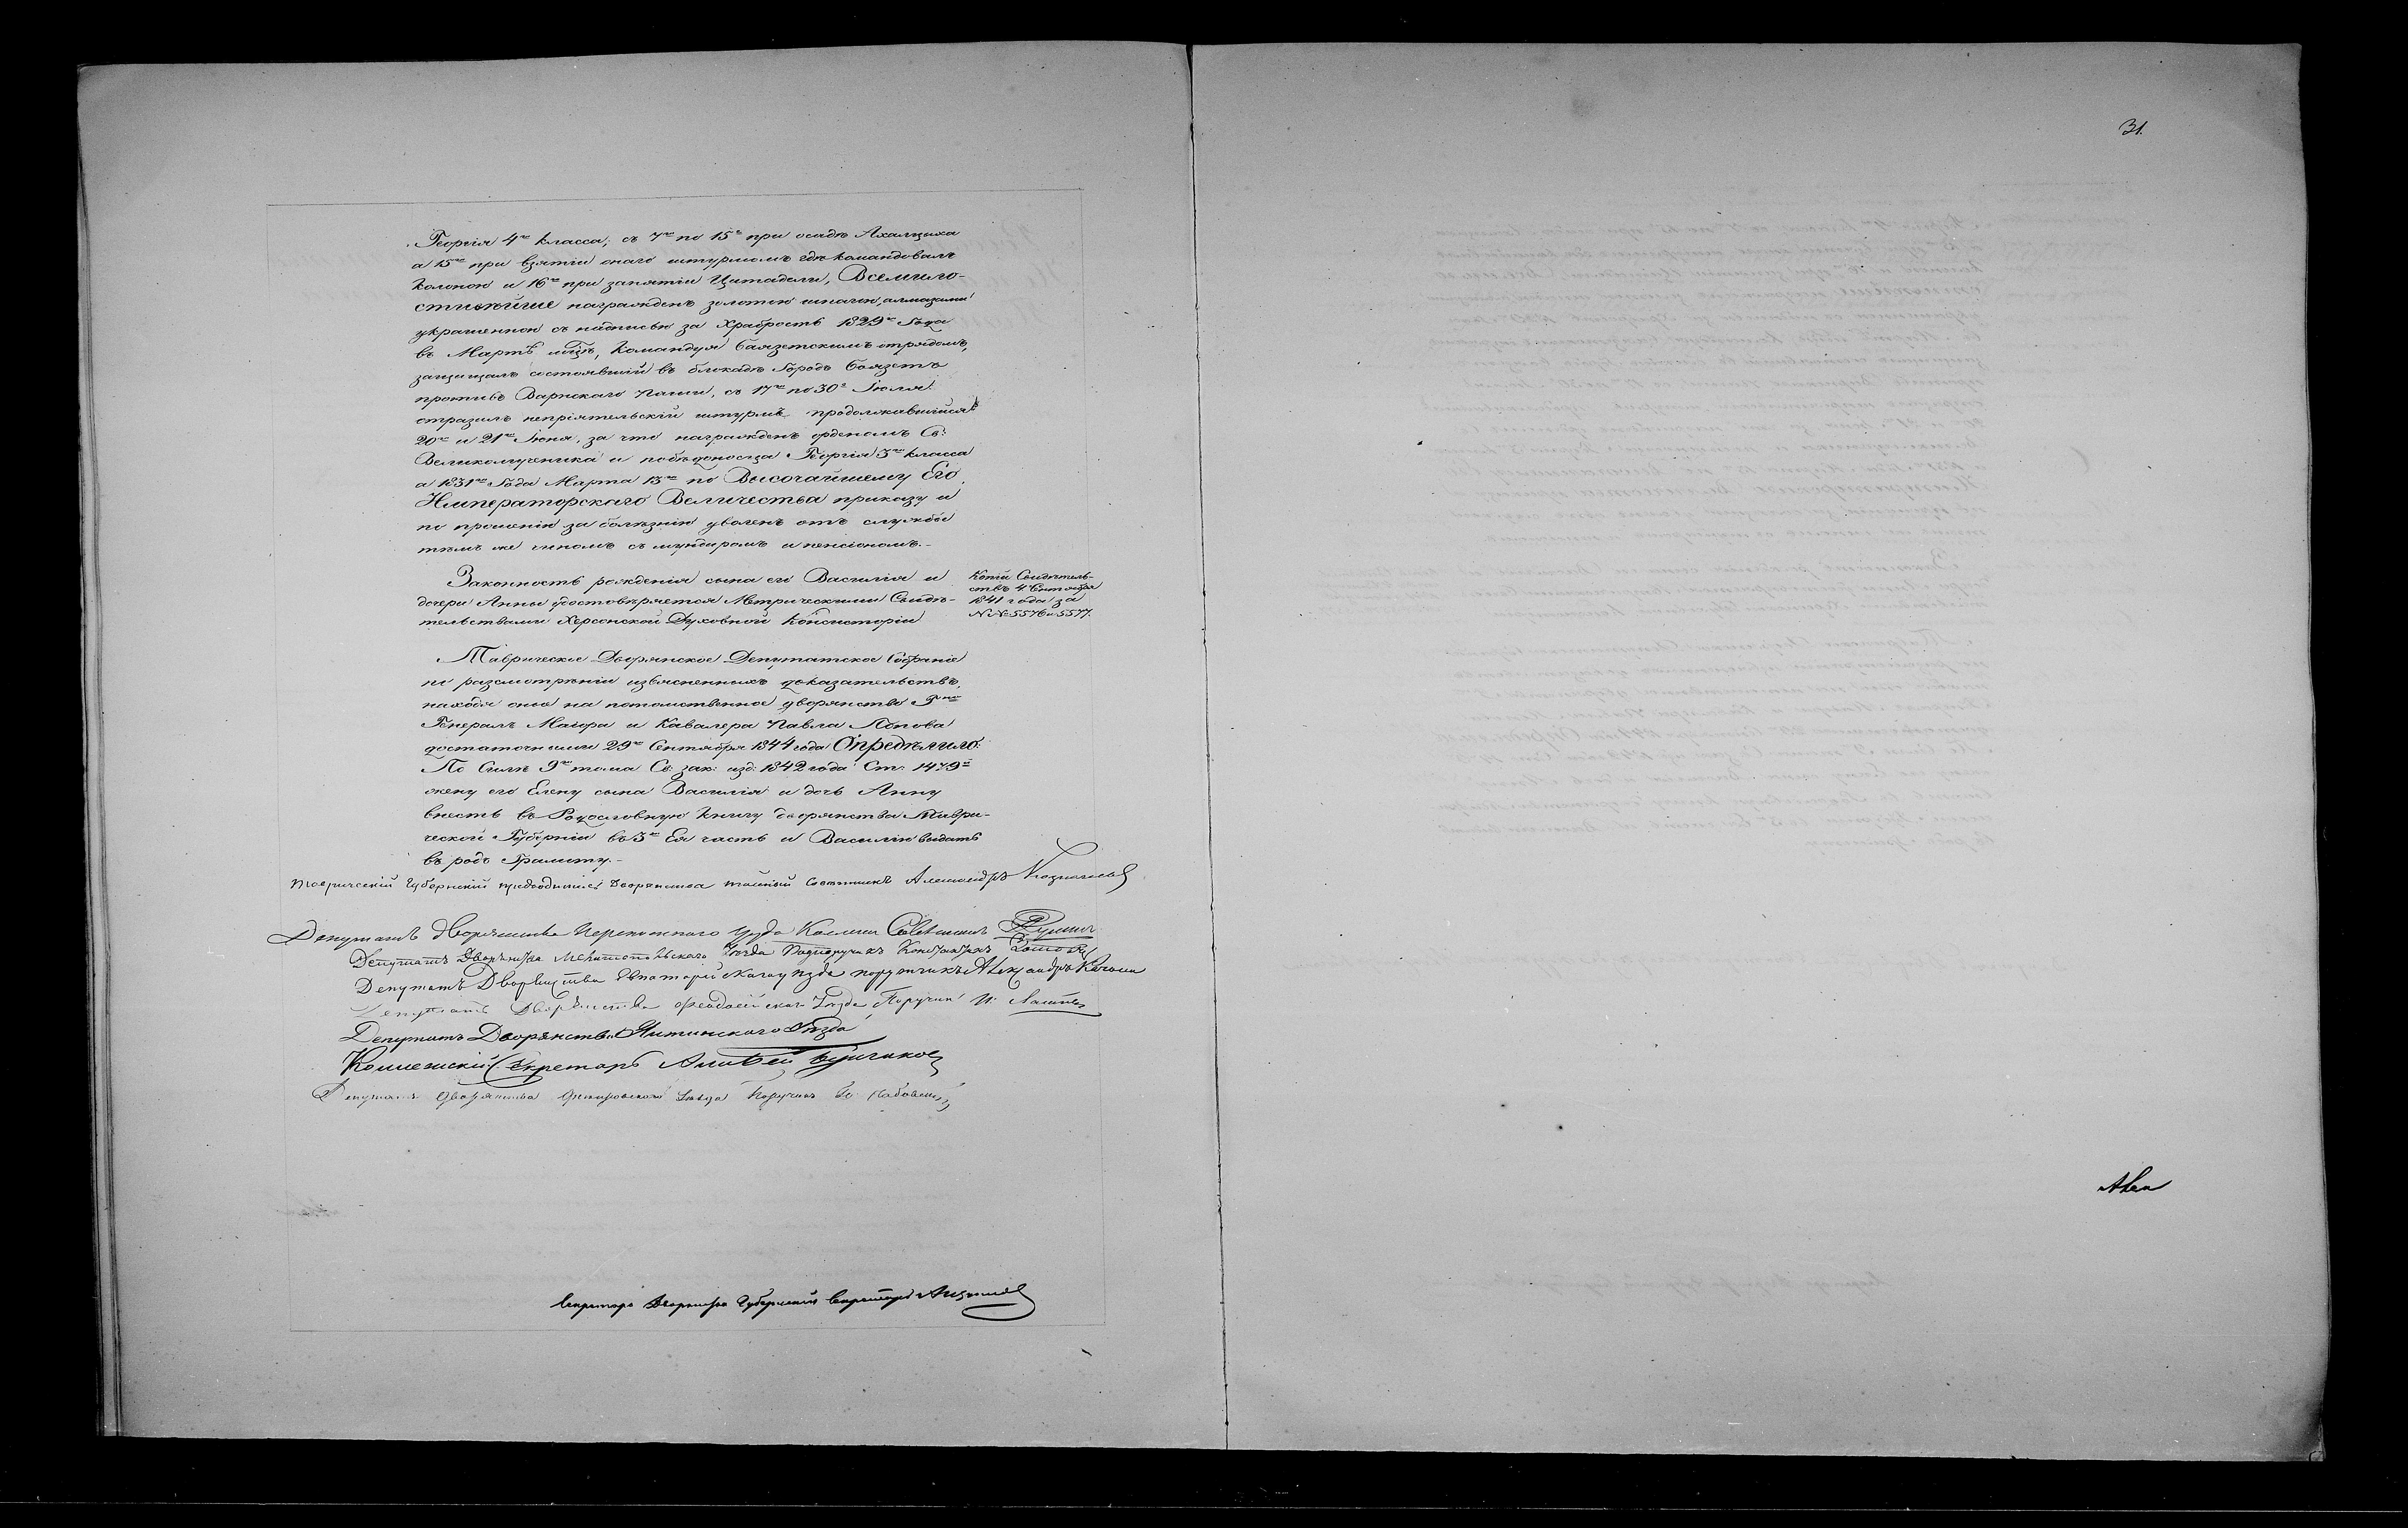 Георгія 4го класса; съ 7го по 15е при осадѣ Ахалциха
а 15го при взятіи онаго штурмомъ гдѣ командовалъ
колоною и 16го при занятіи Цитадели, Всемило-
стивѣйше награжденъ золотою шпагою, алмазами
украшенною съ надписью за храбрость 1829го Года
въ Мартѣ мцѣ, командуя Баязетскимъ отрядомъ,
защищалъ состоявшій въ блокадѣ Городъ Баязетъ
противъ Ванскаго Паши, съ 17го по 30е Іюля
отразилъ непріятельскій штурмъ продолжавшійся
20го и 21го Іюня, за что награжденъ орденомъ Св:
Великомученика и побѣдоносца Георгія 3го класса
а 1831го Года Марта 13го по Высочайшему Его
Императорскаго Величества приказу и
по прошенію за болѣзнію уволенъ отъ службы
тѣмъ же чиномъ съ мундиромъ и пенсіономъ.-
Законность рожденія сына его Василія и
дочери Анны удостовѣряется Метрическими Свидѣ-
тельствами Херсонской Духовной Консисторіи
Копіи Свидѣтель-
ствъ 4 Сентября
1841 года за
№№ 5576 и 5577.
Таврическое Дворянское Депутатское Собраніе
по разсмотрѣніи изъясненныхъ доказательствъ,
находя оныя на потомственное дворянство Гна
Генералъ Маіора и Кавалера Павла Попова
достаточными 29го Сентября 1844 года Опредѣлило:
По Силѣ 9го тома Св: зак: изд: 1842 года Ст: 1479й
жену его Елену сына Василія и дочь Анну
внесть въ Родословную книгу дворянства Таври-
ческой Губерніи въ 3ю Ея часть и Василію выдать
въ родъ Грамоту.-
Таврическій Губернскій предводитель Дворянства тайный Советникъ Александръ Казначеевъ
Депутатъ Дворянства Перекопскаго уезда Советникъ
Депутатъ Дворянства Мелитопольскаго Уезда Подпоручикъ
Депутатъ Дворянства Евпаторійскаго уѣзда поручикъ Александръ
Депутатъ Дворянства Феодосійскаго Уезда Поручикъ
Депутатъ Дворянства Ялтинскаго Уѣзда
Коллежскій Секретарь
Депутатъ Дворянства Днепровскаго Уезда Поручикъ
Секретарь Дворянства Губернскій Секретарь
31.